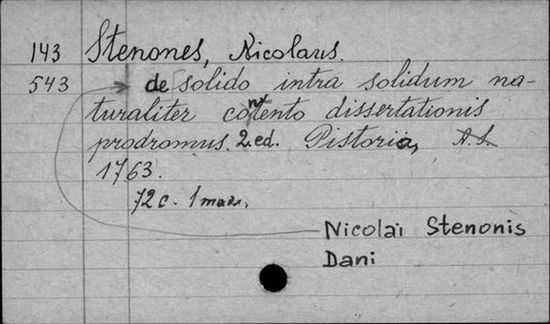 143 Stenones, Nicolaus.
543 de solido intra solidum na-
turaliter contento dissertationis
prodromus. 2. ed. Pistoria,
1763.
72 c.
Nicolai Stenonis
Dani